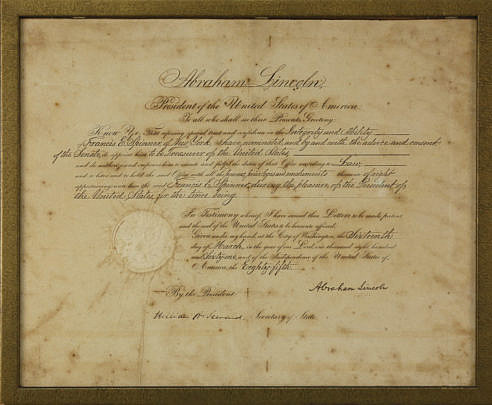 Abraham Lincoln,
President of the United States of America.
To all who shall see these Presents, Greeting:
Know Ye, That reposing special trust and confidence in the Integrity and Ability
of Francis E. Spinner of New York, I have nominated, and by and with the advice and consent
of the Senate, do appoint him to be Treasurer of the United States,
and do authorize and empower him to execute and fulfil the duties of that Office according to Law;
and to have and to hold the said Office with all the powers, privileges and emoluments thereunto of right
appertaining unto him the said Francis E. Spinner, during the pleasure of the President of
the United States for the time being.
In Testimony whereof, I have caused these Letters to be made patent
and the seal of the United States to be hereunto affixed.
Given under my hand, at the City of Washington, the Sixteenth
day of March in the year of our Lord one thousand eight hundred
and Sixty one, and of the Independence of the United States of
America, the Eighty fifth.
By the President
Abraham Lincoln
William H. Seward Secretary of State.